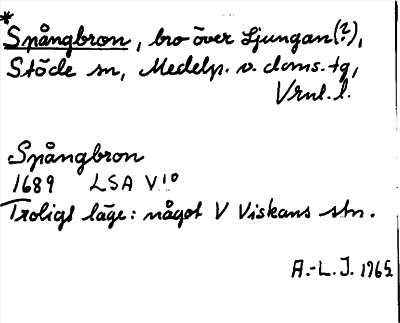 *
Spångbron, bro över Ljungan(?),
Stöde sn, Medelp. v. doms. tg,
Vrnl. l.
Spångbron
1689 LSA V 10
Troligt läge: något V Viskans stn.
A.-L. J. 1965.